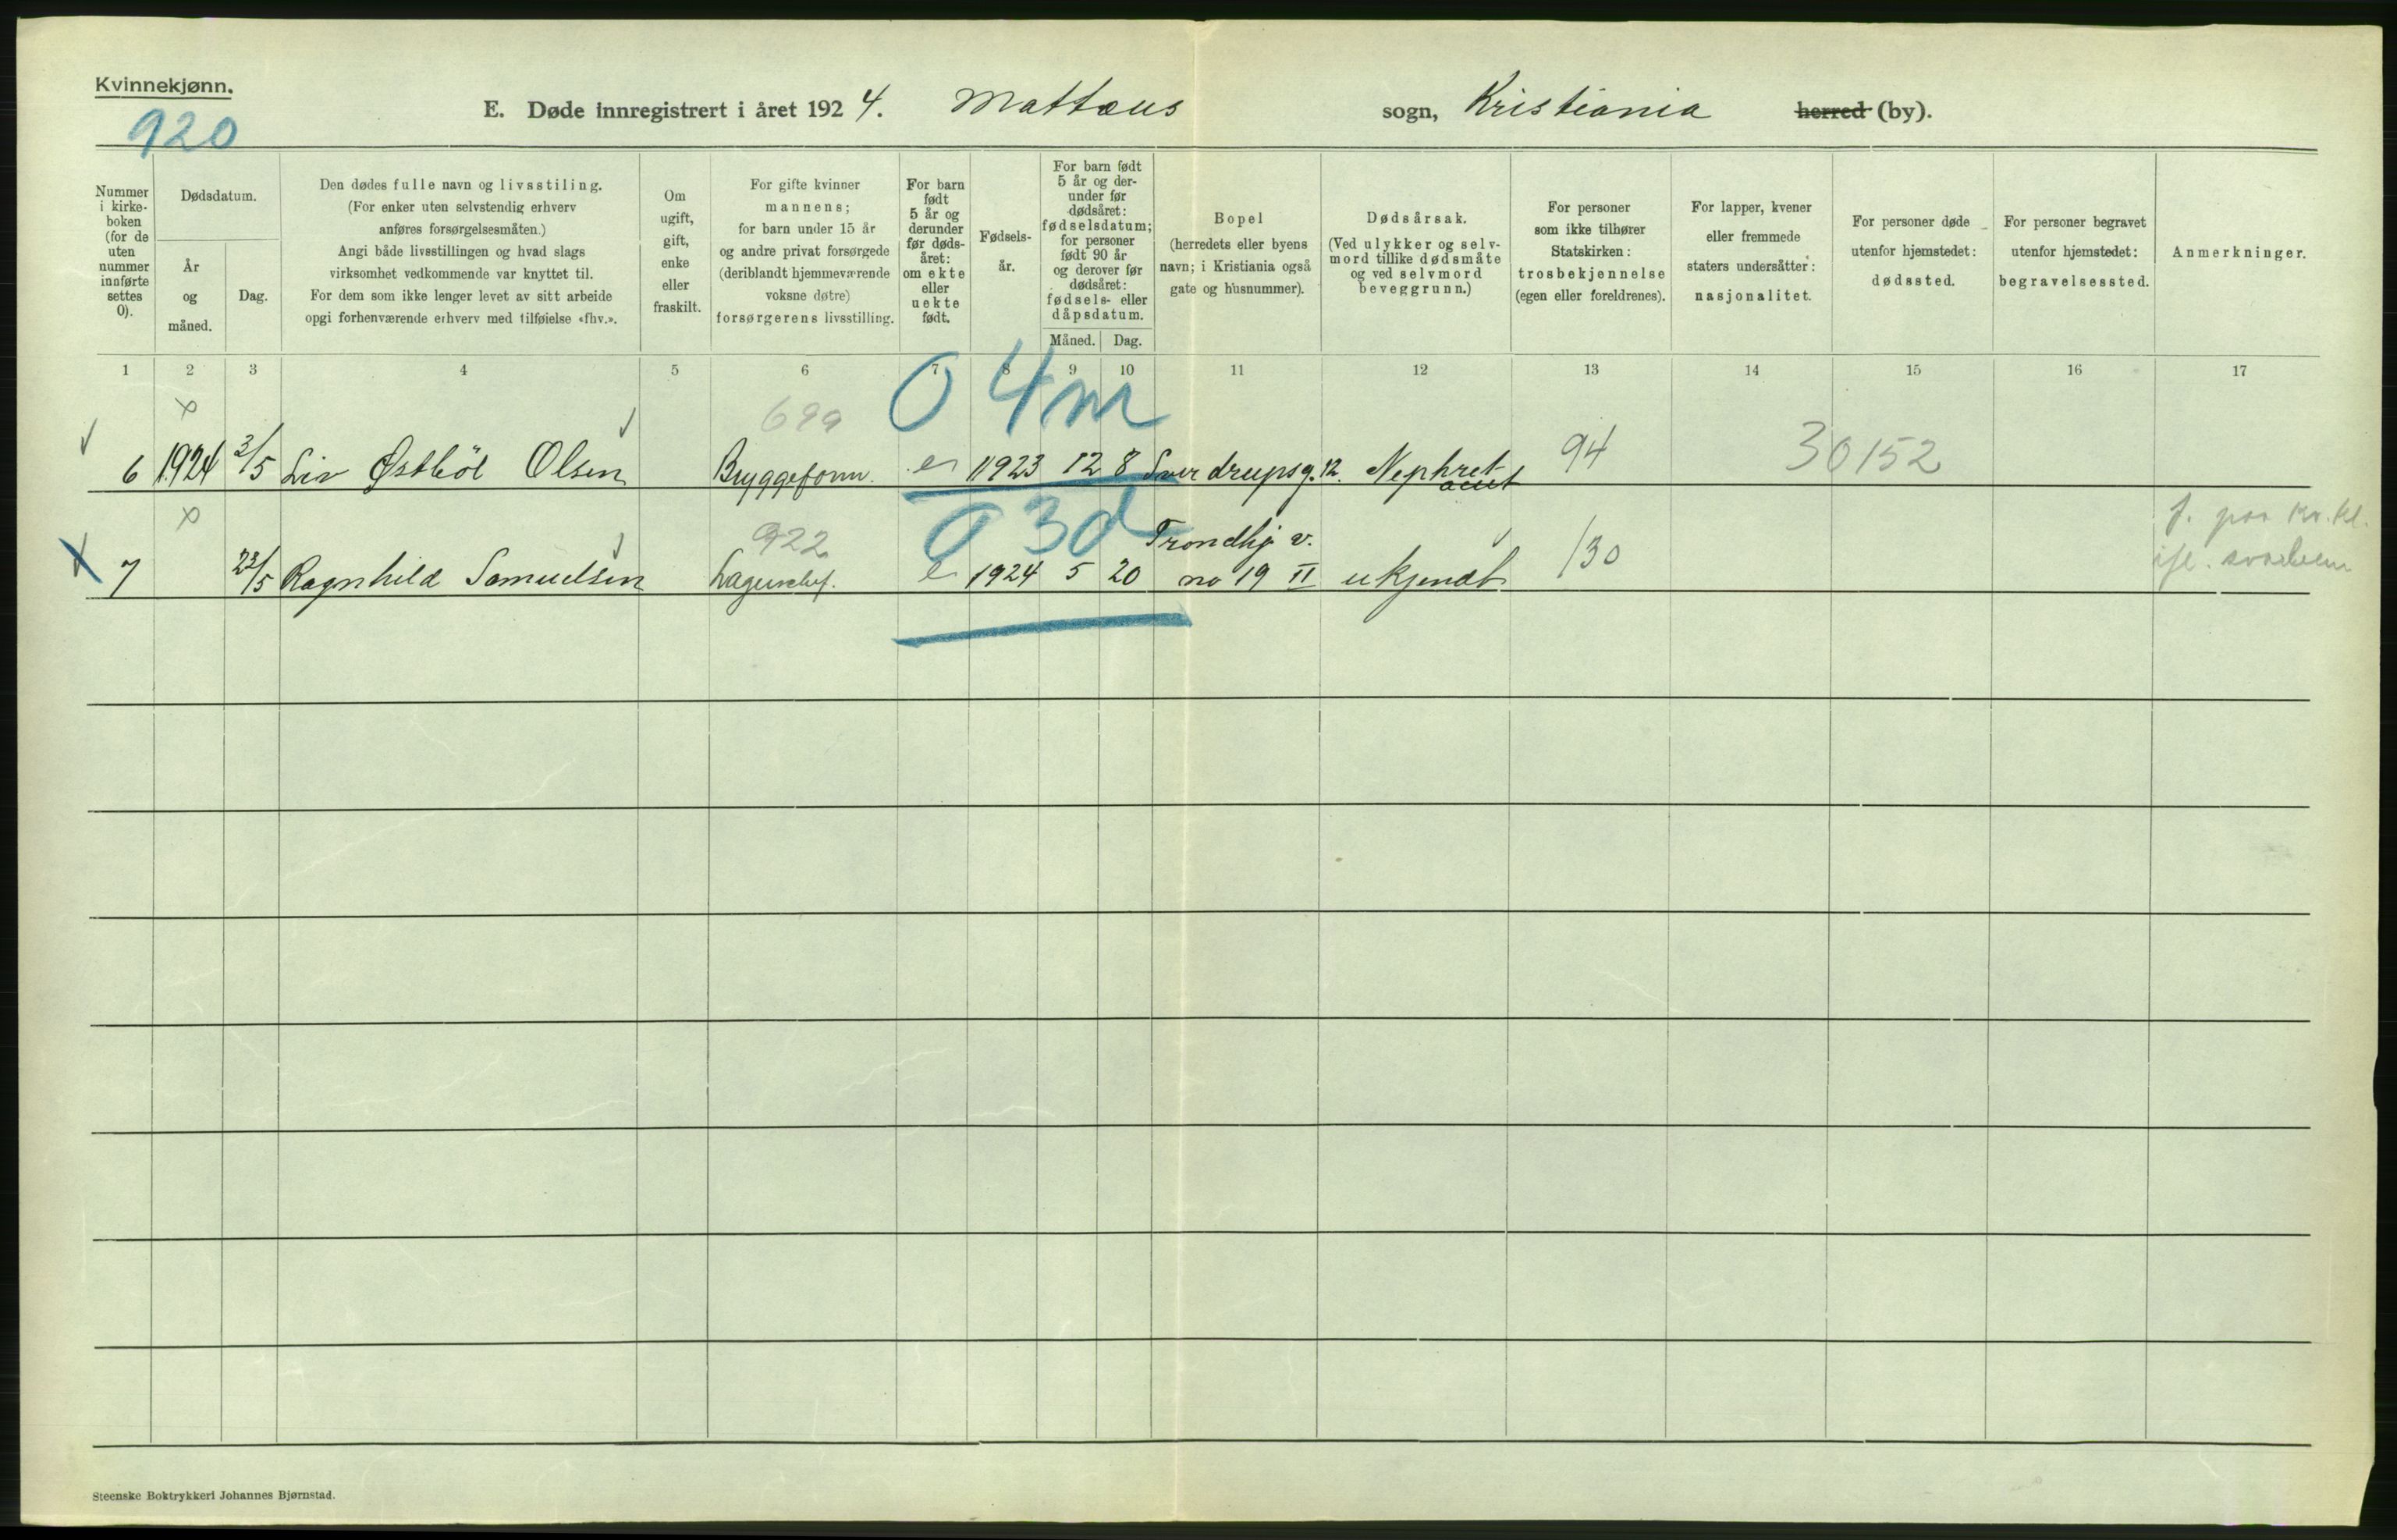 Kvinnekjønn.
920
E. Døde innregistrert i året 1924. Mattæus sogn, Kristiania herred (by).
Nummer i kirke- boken (for de uten nummer innførte settes 0).
Dødsdatum.
År og måned.
Dag.
Den dødes fulle navn og livsstiling.
(For enker uten selvstendig erhverv
anføres forsørgelsesmåten.)
Angi både livsstillingen og hvad slags
virksomhet vedkommende var knyttet til.
For dem som ikke lenger levet av sitt arbeide
opgi forhenværende erhverv med tilføielse «fhv.».
Om
ugift,
gift,
enke
eller
fraskilt.
For gifte kvinner
mannens;
for barn under 15 år
og andre privat forsørgede
(deriblandt hjemmeværende
voksne døtre)
forsørgerens livsstilling.
For barn
født
5 år og
derunder
før døds-
året:
om ekte
eller
uekte
født.
Fødsels-
år.
For barn født
5 år og der-
under før
dødsåret:
fødselsdatum;
for personer
født 90 år
og derover før
dødsåret:
fødsels- eller
dåpsdatum.
Måned. Dag.
Bopel
(herredets eller byens
navn; i Kristiania også
gate og husnummer).
Dødsårsak.
(Ved ulykker og selv-
mord tillike dødsmåte
og ved selvmord
beveggrunn.)
For personer
som ikke tilhører
Statskirken:
trosbekjennelse
(egen eller foreldrenes).
For lapper, kvener
eller fremmede
staters undersåtter:
nasjonalitet.
For personer døde
utenfor hjemstedet:
dødssted.
For personer begravet
utenfor hjemstedet:
begravelsessted.
Anmerkninger.
1 2 3 4 5 6 7 8 9 10 11 12 13 14 15 16 17
x 699 0 4m
6 1924 3/5 Liv Østböl Olsen Bryggeform. e 1923 12 8 Sverdrupsg. 12. Nephret acut 94 30152
x 922 0 3d Trondhj v. f. paa Kv. kl.
7 22/5 Ragnhild Samuelsen Lagerchef. e 1924 5 20 no 19 II ukjendt 130
Steenske Boktrykkeri Johannes Bjørnstad.